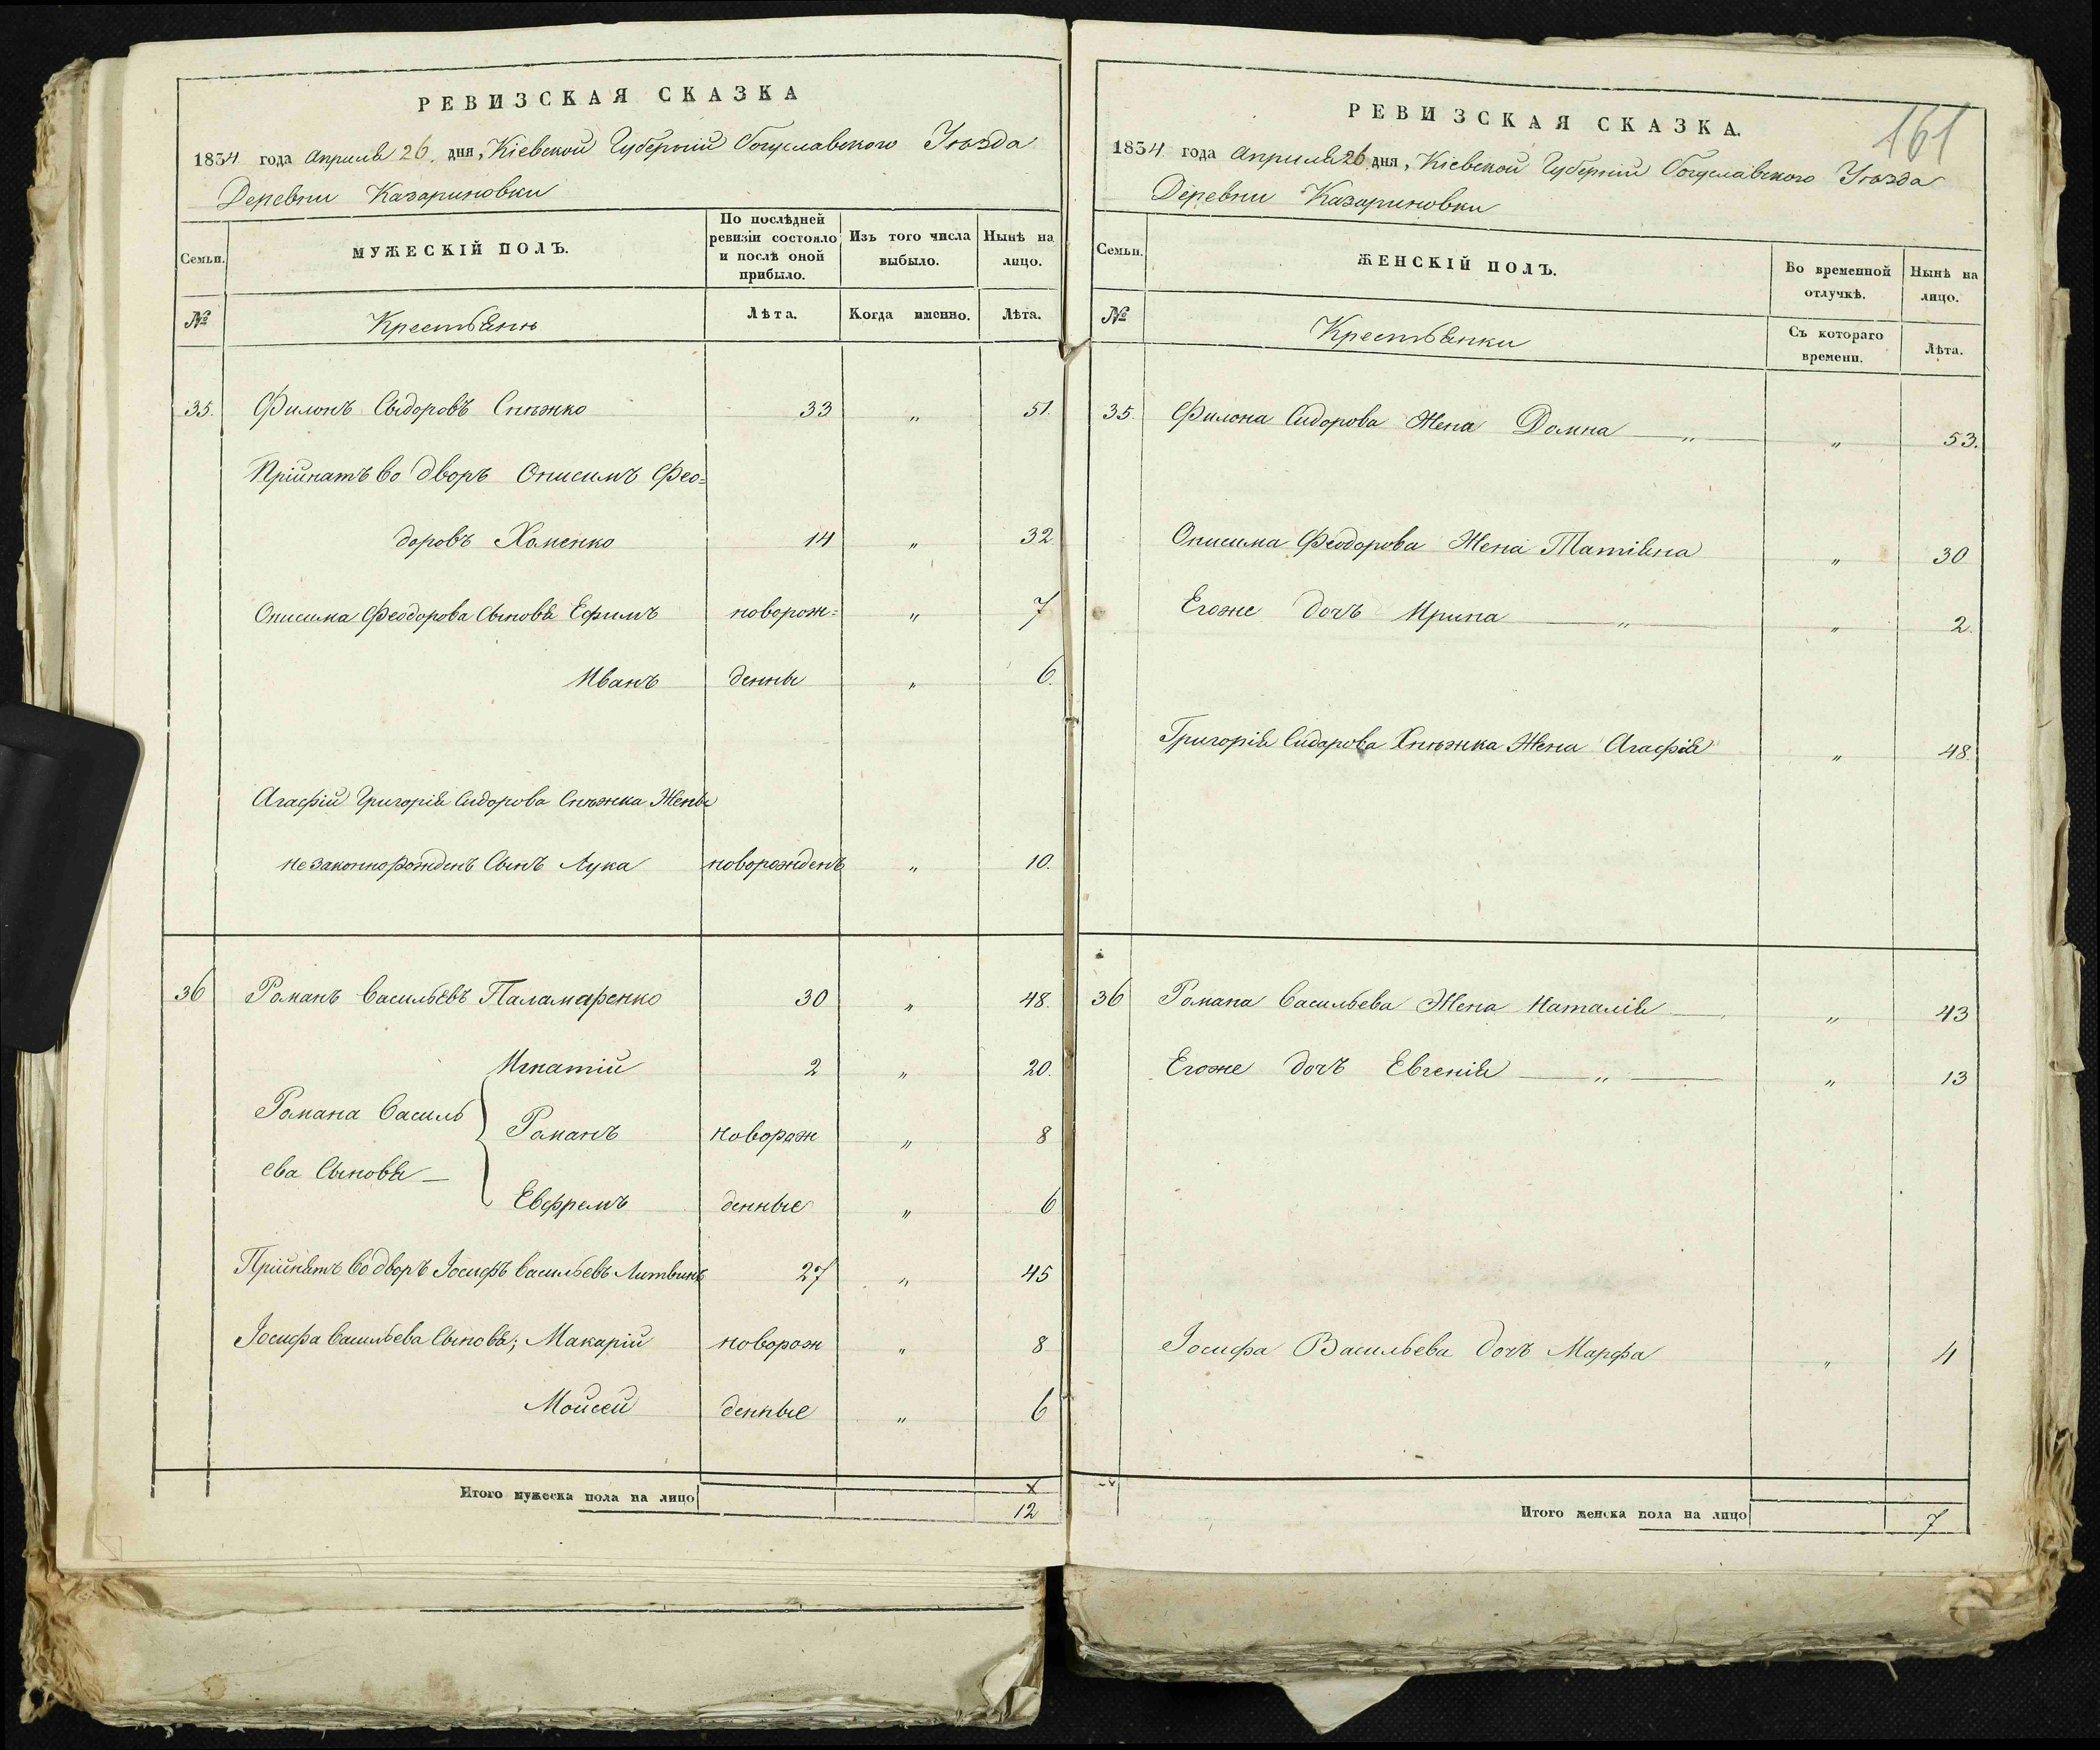 РЕВИЗСКАЯ СКАЗКА
1834 года Апрѣля 26. дня, Кіевской Губерніи Богуславского Уѣзда
Деревни Казариновки
Семьи.
МУЖЕСКІЙ ПОЛЪ.
По послѣдней ревизіи состояло и послѣ оной прибыло.
Изъ того числа выбыло.
Нынѣ на лицо.
№
Крестьянъ
Лѣта.
Когда именно.
Лѣта.
35. Филонъ Сыдоровъ Снѣжко 33 „ 51.
Пріймáтъ во дворъ Онисимъ Фео=
доровъ Хоменко 14 „ 32
Онисима Феодорова Сыновя Ефимъ новорож= „ 7
Иванъ денны „ 6.
Агафіи Григорія Сидорова Снѣжка Жены
незаконнорожденъ Сынъ Лука новорожденъ „ 10.
36 Романъ Васильевъ Паламаренко 30 „ 48.
Игнатій 2 „ 20.
Романа Василь
Романъ новорож „ 8
ева Сыновя —
Евфремъ денные „ 6
Прійнятъ во дворъ Іосифъ Васильевъ Литвинъ 27 „ 45
Іосифа Васильева Сыновя; Макарій новорож „ 8
Мойсей денные „ 6
Итого мужеска пола на лицо
х
12
РЕВИЗСКАЯ СКАЗКА.
161
1834 года Апрѣля 26 дня, Кіевской Губерніи Богуславского Уѣзда
Деревни Казариновки
Семьи.
ЖЕНСКІЙ ПОЛЪ.
Во временной отлучкѣ.
Нынѣ на лицо.
№
Крестьянки
Съ котораго времени.
Лѣта.
35. Филона Сидорова Жена Домна — „ — „ 53.
Онисима Феодорова Жена Татіяна „ 30
Егоже дочь Ирина — „ — „ 2.
Григорія Сидорова Снѣжка Жена Агафія „ 48.
36 Романа Васильева Жена Наталія — „ 43
Егоже дочь Евгенія — „ — „ 13
Іосифа Васильева дочь Марфа „ 4
Итого женска пола на лицо
7